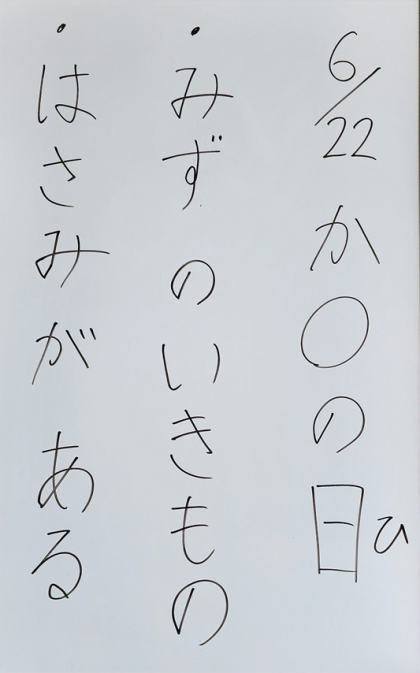 6/22 か〇の日
ひ
・みずのいきもの
・はさみがある